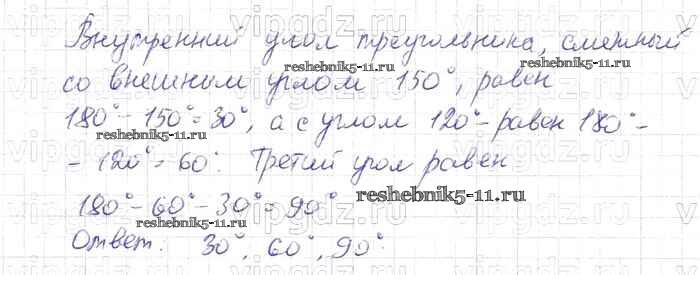 Внутренний угол треугольника, смежный
со внешним углом 150°, равен
180° - 150° = 30°, а с углом 120° - равен 180° -
- 120° = 60°. Третий угол равен
180° - 60° - 30° = 90°
Ответ: 30°, 60°, 90°.
reshebnik5-11.ru
reshebnik5-11.ru
reshebnik5-11.ru
reshebnik5-11.ru
vipgdz.ru